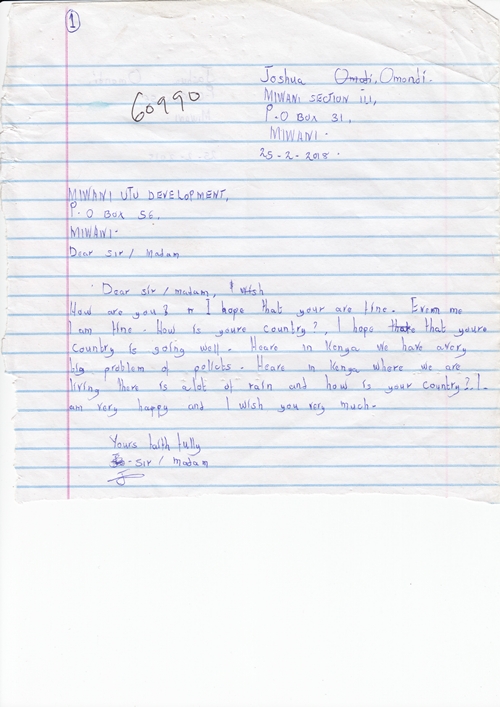 1
60990
Joshua Omodi, Omondi.
MIWANI SECTION iii,
P.O BOX 31,
MIWANI.
25-2-2018.
MIWANI UTU DEVELOPMENT,
P.O BOX 56,
MIWANI.
Dear Sir / Madam
Dear sir / madam, I wish
How are you? I hope that your are fine. Evern me
I am fine. How is youre country?, I hope that youre
Country is going well. Heare in Kenya we have avery
big problem of polictcs. Heare in Kenya where we are
living there is alot of rain and how is your country? I
am very happy and I wish you very much.
Yours faith fully
- sir / madam